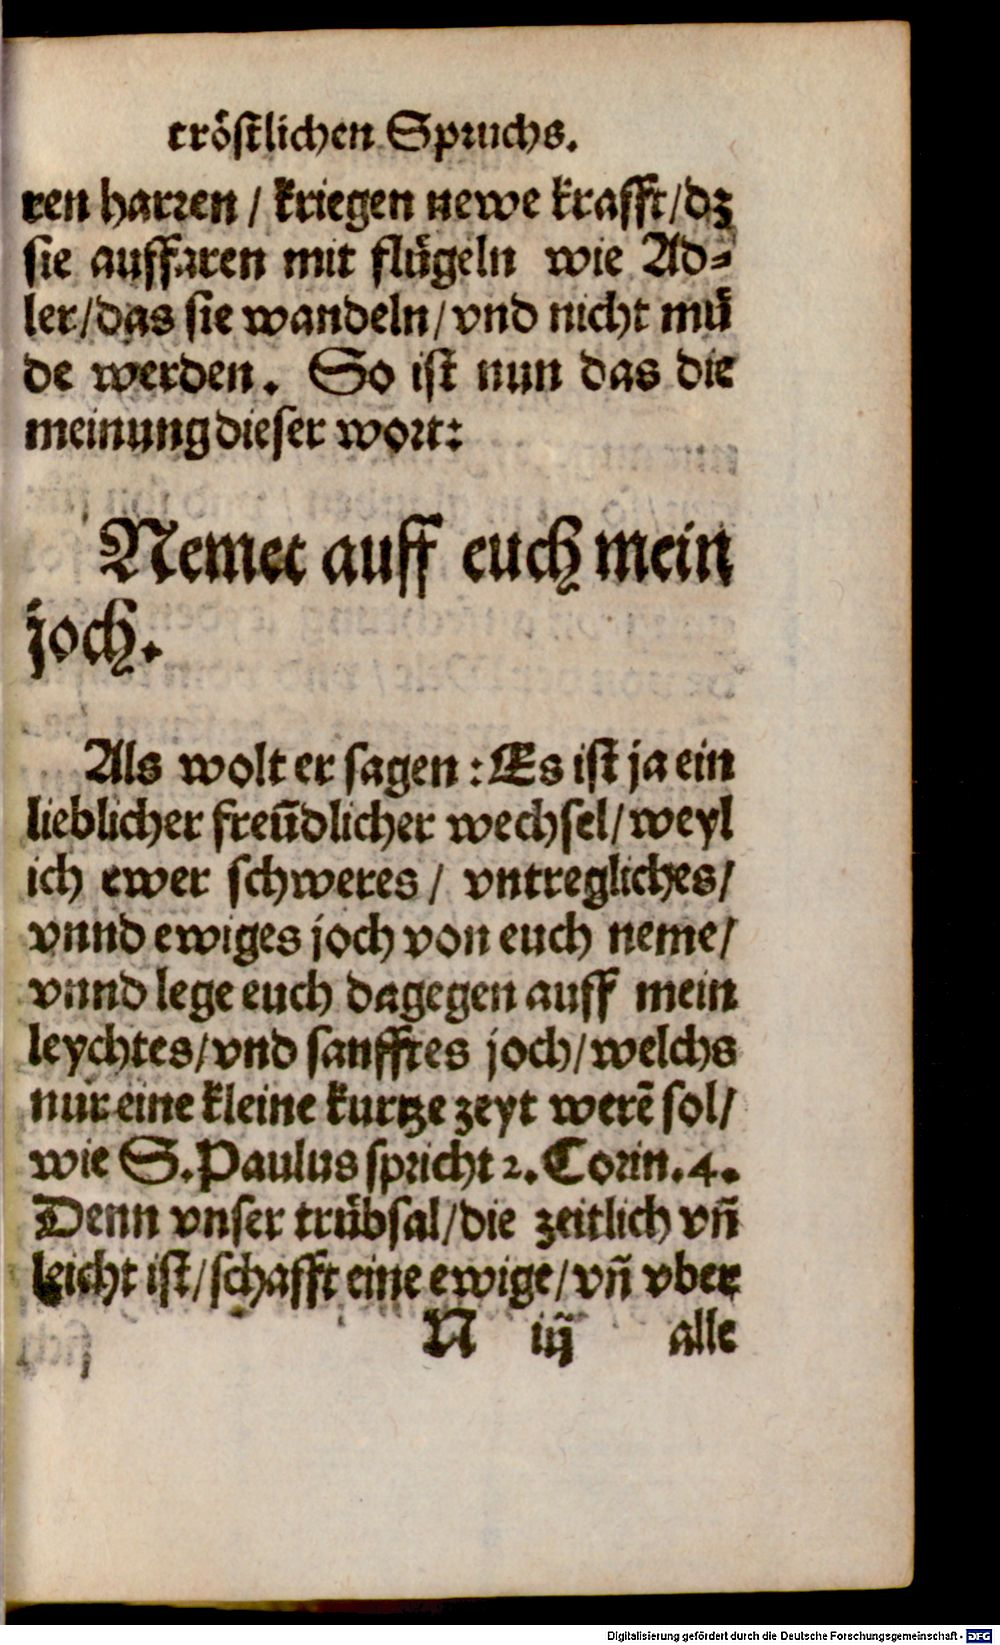 tröstlichen Spruchs.
ren harren / kriegen newe krafft/dz
sie auffaren mit flügeln wie Ad=
ler/das sie wandeln/vnd nicht mü
de werden. So ist nun das die
meinung dieser wort:
Nemet auff euch mein
joch.
Als wolt er sagen : Es ist ja ein
lieblicher freũdlicher wechsel/weyl
ich ewer schweres/ vntregliches/
vnnd ewiges joch von euch neme/
vnnd lege euch dagegen auff mein
leychtes/vnd sanfftes joch/welchs
nur eine kleine kurtze zeyt werẽ sol/
wie S. Paulus spricht 2. Corin. 4.
Denn vnser trübsal/die zeitlich vñ
leicht ist/schafft eine ewige/vñ vber
N iij alle
Digitalisierung gefördert durch die Deutsche Forschungsgemeinschaft - DFG